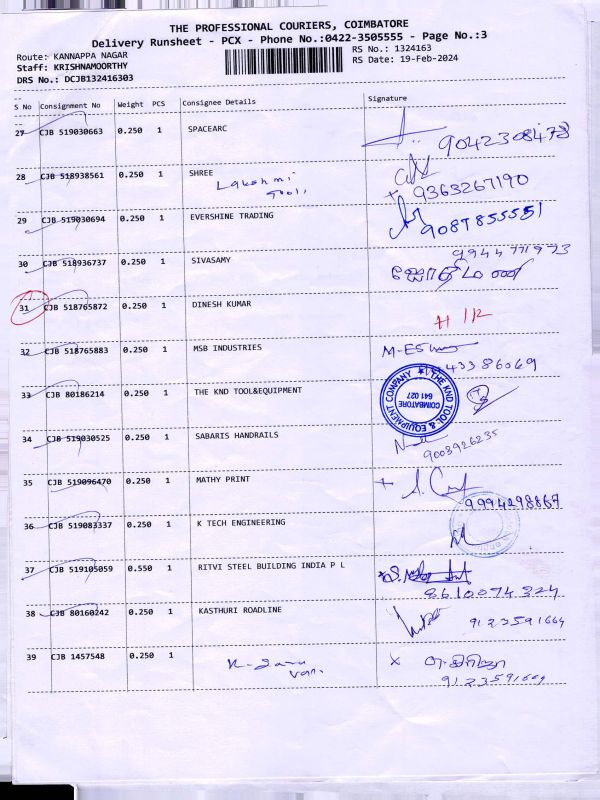 THE PROFESSIONAL COURIERS, COIMBATORE
Delivery Runsheet - PCX - Phone No.:0422-3505555 - Page No.:3
Route: KANNAPPA NAGAR
RS No.: 1324163
Staff: KRISHNAMOORTHY
RS Date: 19-Feb-2024
DRS No.: DCJB132416303
S No Consignment No Weight PCS Consignee Details Signature
27 CJB 519030663 0.250 1 SPACEARC
9042308478
28 CJB 518938561 0.250 1 SHREE
Lakshmi
Tools
9363267190
29 CJB 519030694 0.250 1 EVERSHINE TRADING
9087855551
30 CJB 518936737 0.250 1 SIVASAMY
9944771973
31 CJB 518765872 0.250 1 DINESH KUMAR
32 CJB 518765883 0.250 1 MSB INDUSTRIES
43386069
33 CJB 80186214 0.250 1 THE KND TOOL&EQUIPMENT
THE KND TOOL & EQUIPMENT COMPANY
COIMBATORE
641 027
34 CJB 519030525 0.250 1 SABARIS HANDRAILS
9003926235
35 CJB 519096470 0.250 1 MATHY PRINT
9994298867
36 CJB 519083337 0.250 1 K TECH ENGINEERING
37 CJB 519105059 0.550 1 RITVI STEEL BUILDING INDIA P L
8610074324
38 CJB 80160242 0.250 1 KASTHURI ROADLINE
9123591664
39 CJB 1457548 0.250 1
9123591664